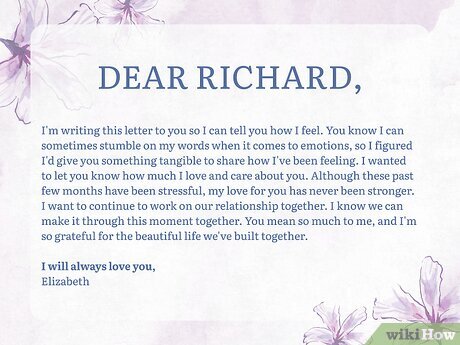 DEAR RICHARD,
I'm writing this letter to you so I can tell you how I feel. You know I can
sometimes stumble on my words when it comes to emotions, so I figured
I'd give you something tangible to share how I've been feeling. I wanted
to let you know how much I love and care about you. Although these past
few months have been stressful, my love for you has never been stronger.
I want to continue to work on our relationship together. I know we can
make it through this moment together. You mean so much to me, and I'm
so grateful for the beautiful life we've built together.
I will always love you,
Elizabeth
wikiHow